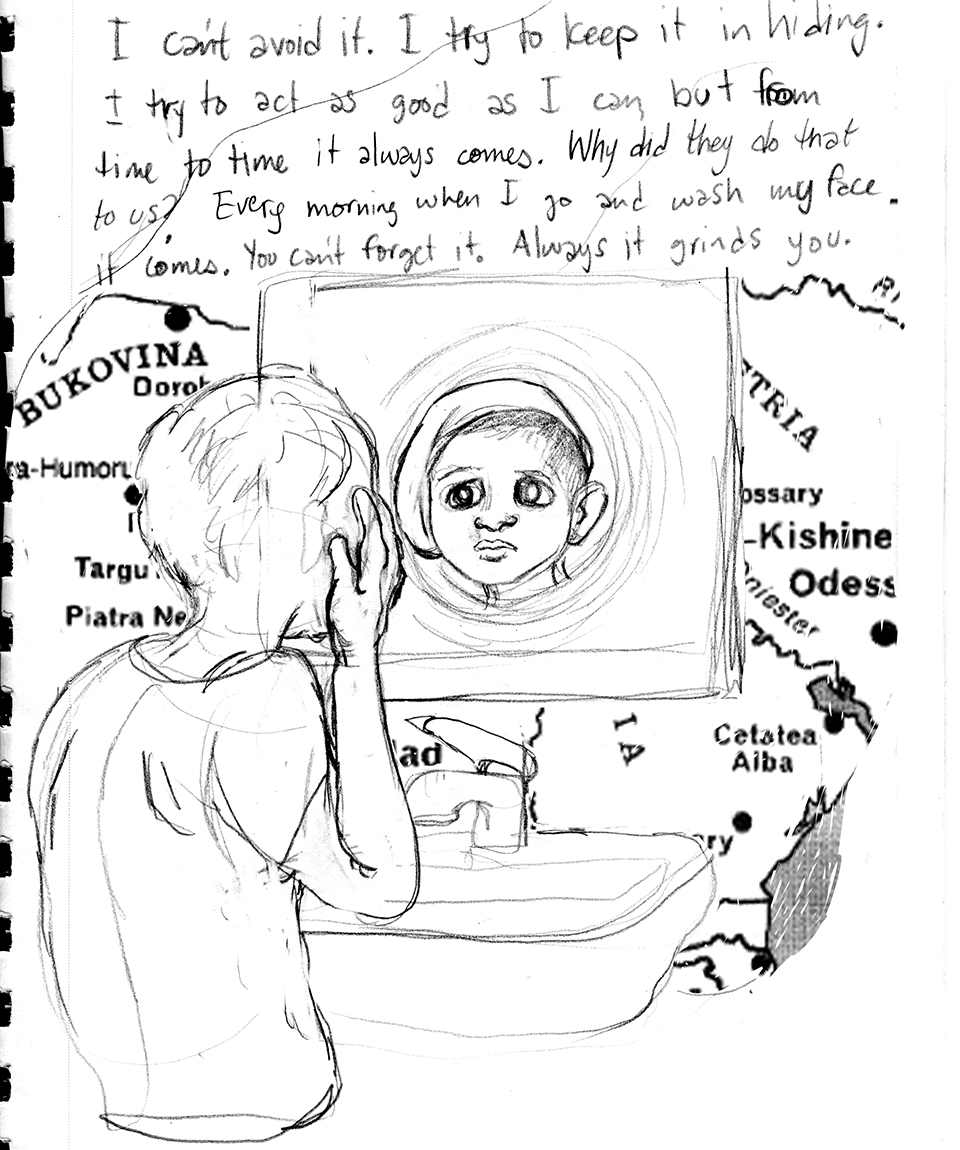 I can't avoid it. I try to keep it in hiding.
I try to act as good as I can but from
time to time it always comes. Why did they do that
to us? Every morning when I go and wash my face.
it comes. You can't forget it. Always it grinds you.
BUKOVINA
Doroh
ra-Humoru
Targu
Piatra Ne
STRIA
ossary
-Kishine
Odess
Dniester
lad
IA
Cetatea
Alba
ry